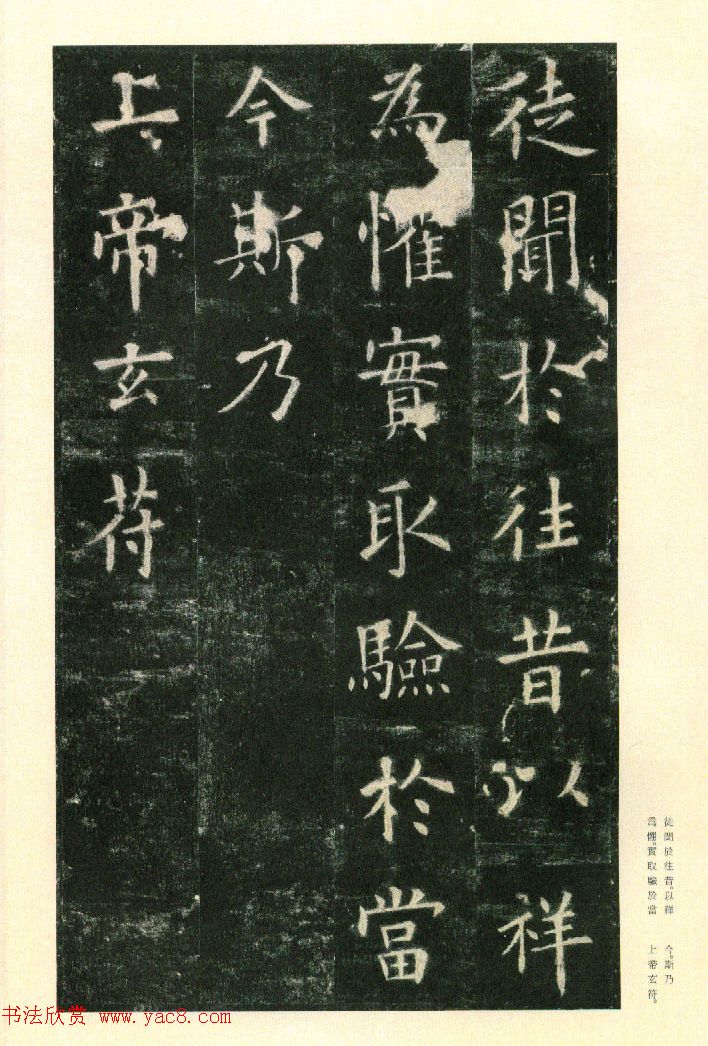 徒聞於往昔以祥
為懼實取驗於當
今斯乃
上帝玄苻
徒聞於往昔。以祥
爲懼。實取驗於當
今。斯乃
上帝玄符。
书法欣赏 www.yac8.com